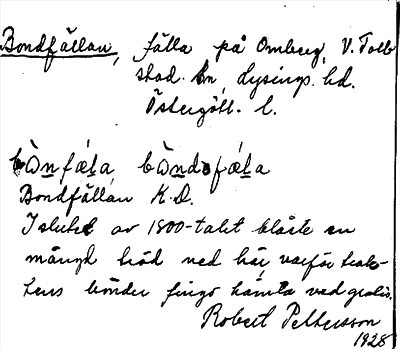 Bondfällan, fälla på Omberg, V. Toll-
stad. sn, Lysings. hd.
Östergötl. l.
bòn̲fæl̲a, bòn̲dofæl̲a
Bondfällan K.D.
I slutet av 1800-talet blåste en
mängd träd ned här varför trak-
tens bönder fingo hämta ved gratis.
Robert Pettersson
1928